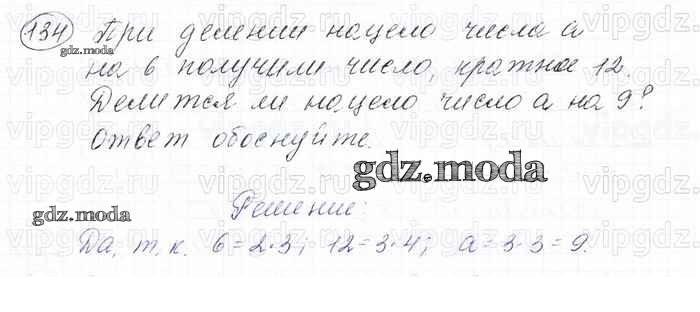 134 При делении нацело числа a
на 6 получили число, кратное 12.
Делится ли нацело число a на 9?
Ответ обоснуйте.
Решение:
Да, т. к. 6=2·3; 12=3·4; a=3·3=9.
gdz.moda
gdz.moda
gdz.moda